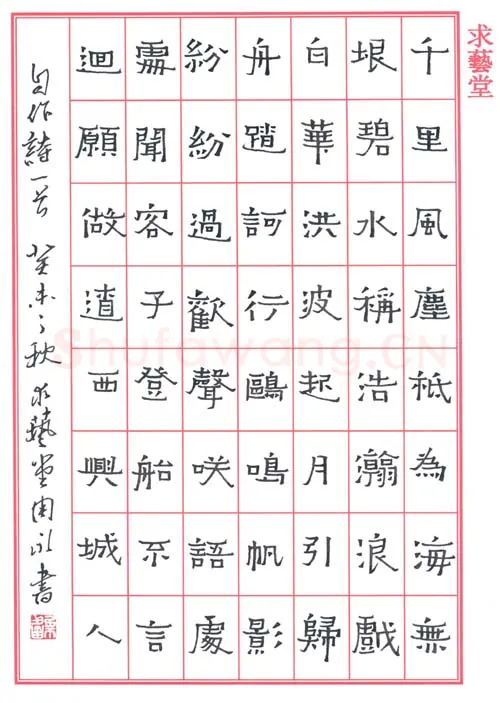 求藝堂
千里風塵祇為海無
垠碧水稱浩瀚浪戲
白華洪波起月引歸
舟訶行鷗鳴帆影
紛紛過歡聲咲語處
處聞客子登船不言
迴願做西興城人
自作詩一首 癸未之秋 求藝堂周永書
Shufawang.CN